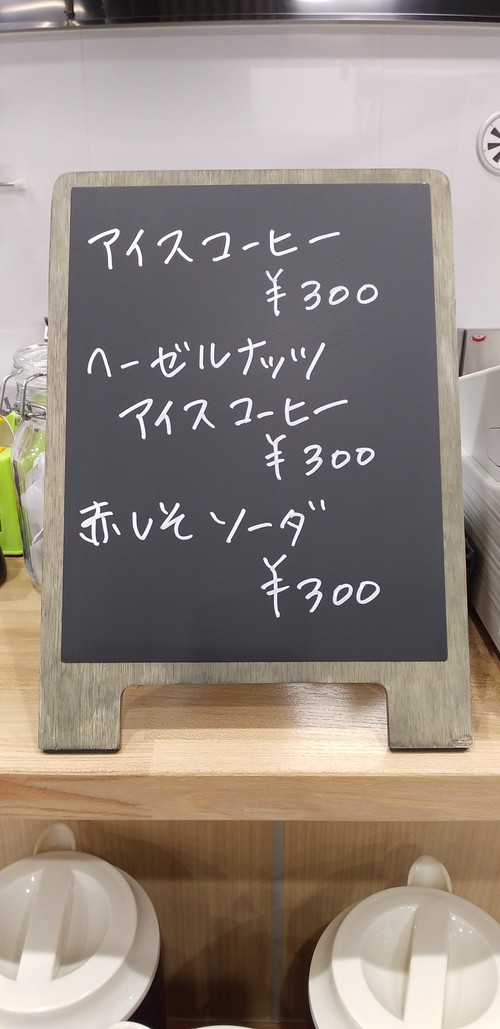 アイスコーヒー
¥300
ヘーゼルナッツ
アイスコーヒー
¥300
赤しそソーダ
¥300